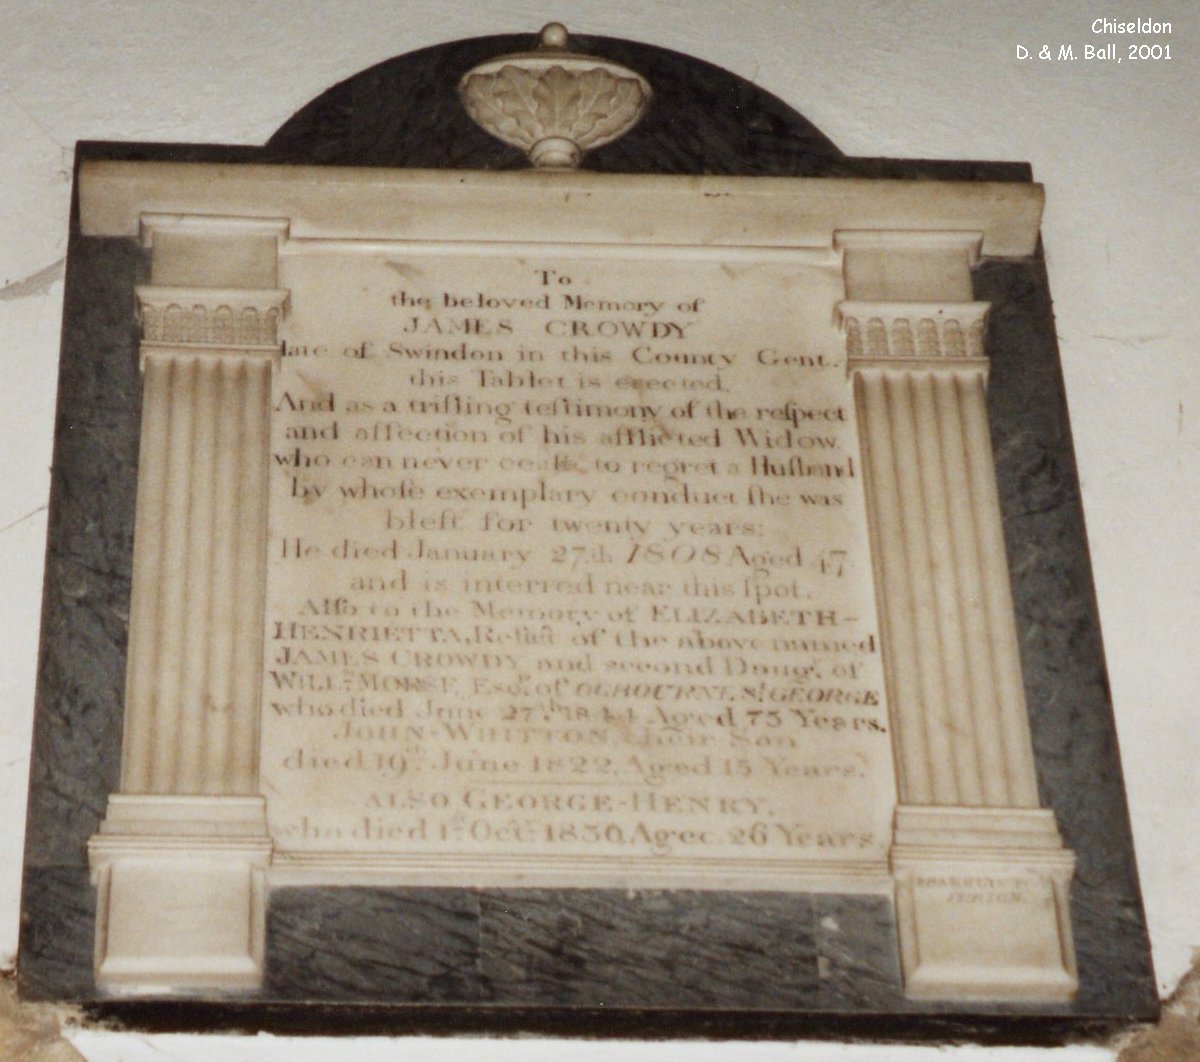 Chiseldon
D. & M. Ball, 2001
To
the beloved Memory of
JAMES CROWDY
late of Swindon in this County Gent.
this Tablet is erected,
And as a trifling teſtimony of the reſpect
and affection of his afflicted Widow
who can never ceaſe, to regret a Huſband
by whoſe exemplary conduct ſhe was
bleſt for twenty years:
He died January 27.th 1808 Aged 47
and is interred near this ſpot.
Alſo to the Memory of ELIZABETH-
HENRIETTA, Relict of the above named
JAMES CROWDY and second Daug.r of
WILL.M MORSE, Esq.r of OGBOURNE, St. GEORGE
who died June 27.th 1844 Aged 75 Years.
JOHN-WHITTON, their Son
died 19.th June 1822, Aged 15 Years.
ALSO GEORGE-HENRY,
who died 1.st Oct.r 1830, Aged 26 Years